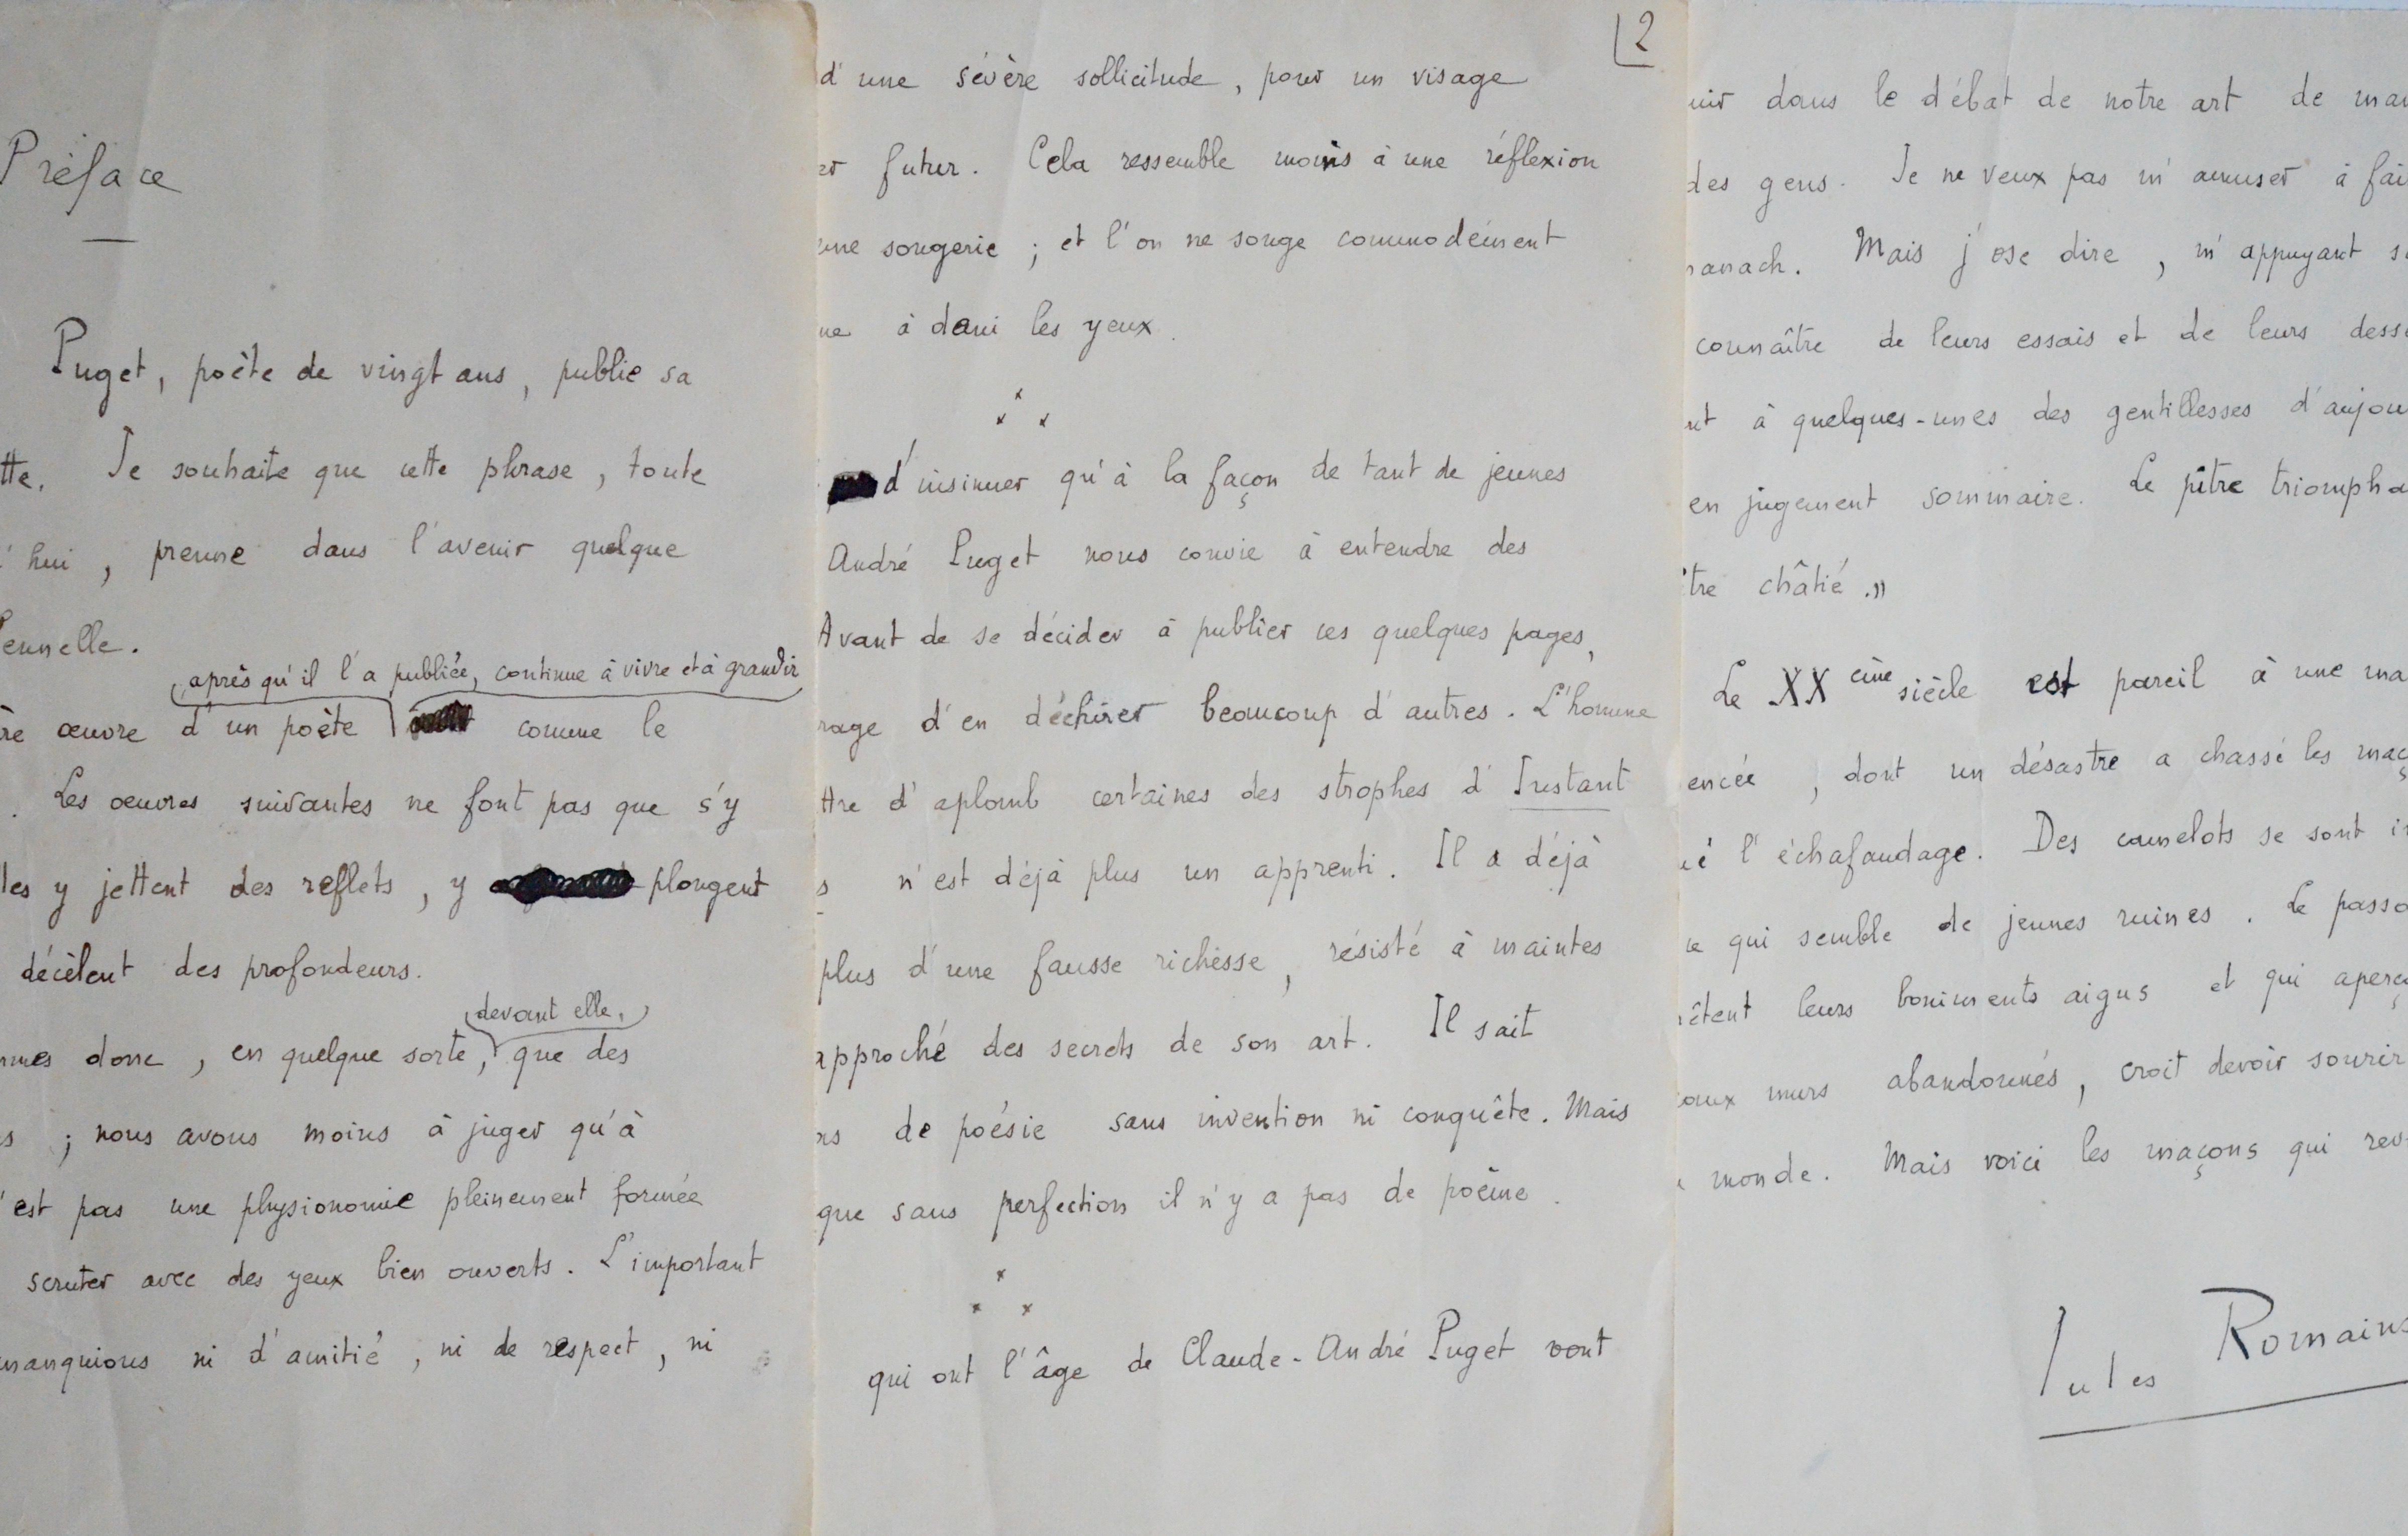 Préface
Puget, poète de vingt ans, publie sa
tte. Je souhaite que cette phrase, toute
'hui, prenne dans l'avenir quelque
ennelle.
après qu'il l'a publiée, continue à vivre et à grandir
re œuvre d'un poète comme le
. Les œuvres suivantes ne font pas que s'y
les y jettent des reflets, y plongent
décèlent des profondeurs.
devant elle,
mmes donc, en quelque sorte, que des
s ; nous avons moins à juger qu'à
'est pas une physionomie pleinement formée
scruter avec des yeux bien ouverts. L'important
manquions ni d'amitié, ni de respect, ni
2
d'une sévère sollicitude, pour un visage
er futur. Cela ressemble moins à une réflexion
une songerie ; et l'on ne songe commodément
ue à demi les yeux.
x x x
d'insinuer qu'à la façon de tant de jeunes
André Puget nous convie à entendre des
Avant de se décider à publier ces quelques pages,
rage d'en déchirer beaucoup d'autres. L'homme
ttre d'aplomb certaines des strophes d'Instant
s n'est déjà plus un apprenti. Il a déjà
plus d'une fausse richesse, résisté à maintes
approché des secrets de son art. Il sait
as de poésie sans invention ni conquête. Mais
que sans perfection il n'y a pas de poème.
x x x
qui ont l'âge de Claude-André Puget vont
nir dans le débat de notre art de mai
des gens. Je ne veux pas m'amuser à fai
anach. Mais j'ose dire, m'appuyant s
connaître de leurs essais et de leurs desse
nt à quelques-unes des gentillesses d'aujou
en jugement sommaire. Le pitre triompha
tre châtié."
Le XXème siècle est pareil à une ma
encée, dont un désastre a chassé les maç
ué l'échafaudage. Des camelots se sont i
e qui semble de jeunes ruines. Le passa
êtent leurs boniments aigus et qui aperç
aux murs abandonnés, croit devoir sourir
monde. Mais voici les maçons qui rev
Jules Romains